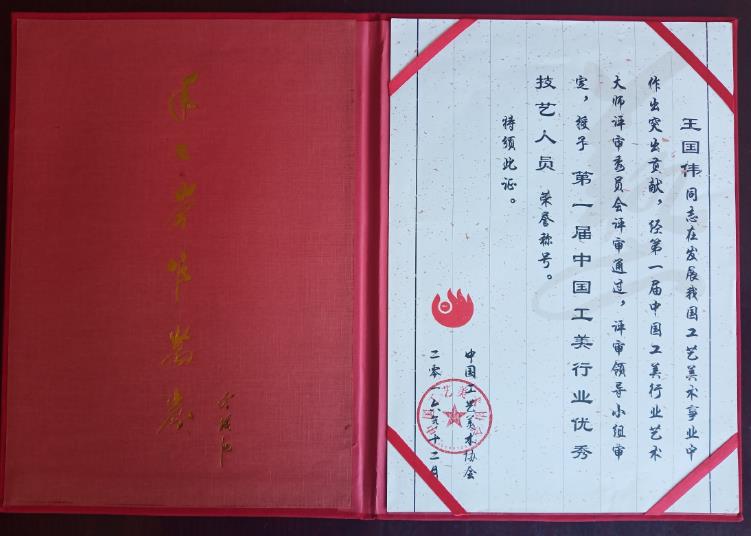 王国伟同志在发展我国工艺美术事业中
作出突出贡献，经第一届中国工美行业艺术
大师评审委员会评审通过，评审领导小组审
定，授予 第一届中国工美行业优秀
技艺人员 荣誉称号。
特颁此证。
中国工艺美术协会